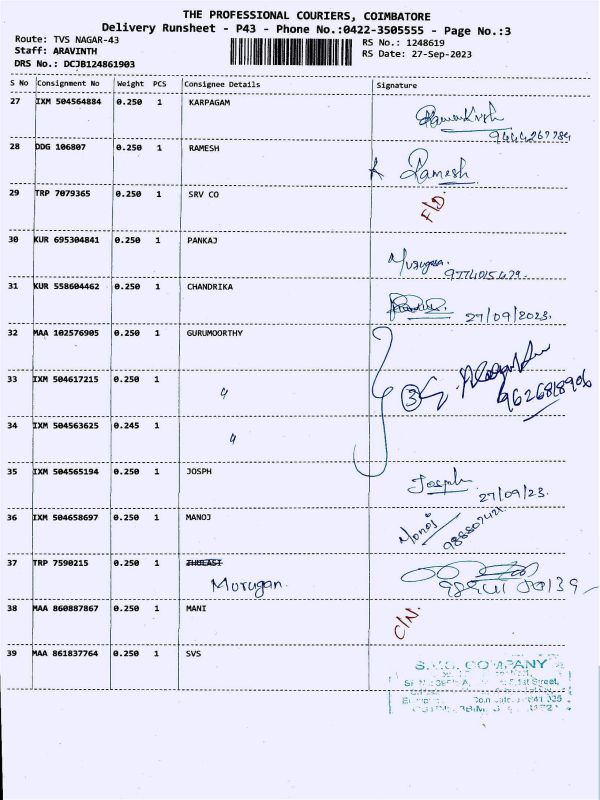 THE PROFESSIONAL COURIERS, COIMBATORE
Delivery Runsheet - P43 - Phone No.:0422-3505555 - Page No.:3
Route: TVS NAGAR-43
RS No.: 1248619
Staff: ARAVINTH
RS Date: 27-Sep-2023
DRS No.: DCJB124861903
S No Consignment No Weight PCS Consignee Details Signature
27 IXM 504564884 0.250 1 KARPAGAM
9444267784
28 DDG 106807 0.250 1 RAMESH
Ramesh
29 TRP 7079365 0.250 1 SRV CO
F/D.
30 KUR 695304841 0.250 1 PANKAJ
Murugesa.
31 KUR 558604462 0.250 1 CHANDRIKA
27/09/2023.
32 MAA 102576905 0.250 1 GURUMOORTHY
33 IXM 504617215 0.250 1 "
3
9626818906
34 IXM 504563625 0.245 1 "
35 IXM 504565194 0.250 1 JOSPH Joseph
27/09/23.
36 IXM 504658697 0.250 1 MANOJ Manoj
37 TRP 7590215 0.250 1 THULASI
Murugan.
38 MAA 860887867 0.250 1 MANI
C/N.
39 MAA 861837764 0.250 1 SVS
COMPANY